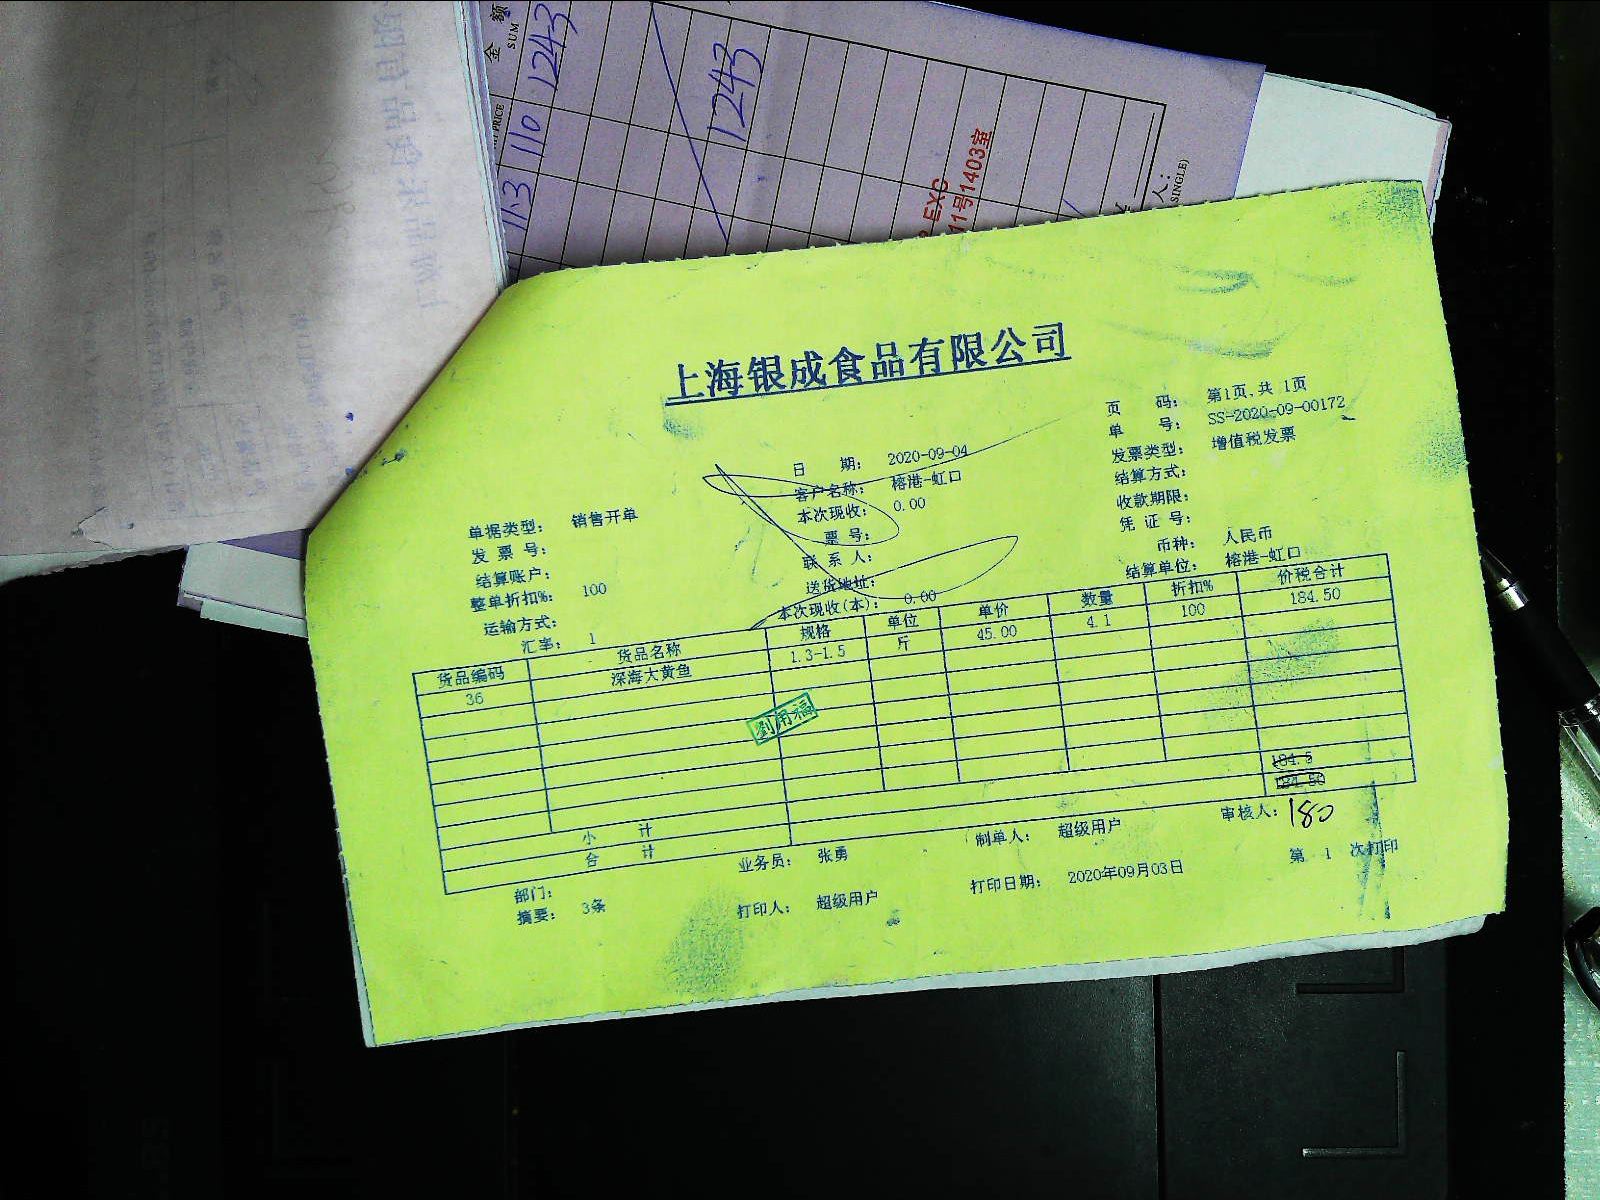 金 额
SUM
1243
110
11.3
1243
EXC
11号1403室
人：
SINGLE)
上海银成食品有限公司
页 码： 第1页,共 1页
单 号： SS-2020-09-00172
日 期： 2020-09-04 发票类型： 增值税发票
客户名称： 榕港-虹口 结算方式：
单据类型： 销售开单 本次现收： 0.00 收款期限：
发 票 号： 票 号： 凭 证 号：
结算账户： 联 系 人： 币种： 人民币
整单折扣%： 100 送货地址： 结算单位： 榕港-虹口
运输方式： 本次现收(本)： 0.00
汇率： 1
货品编码 货品名称 规格 单位 单价 数量 折扣% 价税合计
36 深海大黄鱼 1.3-1.5 斤 45.00 4.1 100 184.50
劉用福
小 计 184.5
合 计 184.50
部门： 业务员： 张勇 制单人： 超级用户 审核人： 180
摘要： 3条 打印人： 超级用户 打印日期： 2020年09月03日 第 1 次打印